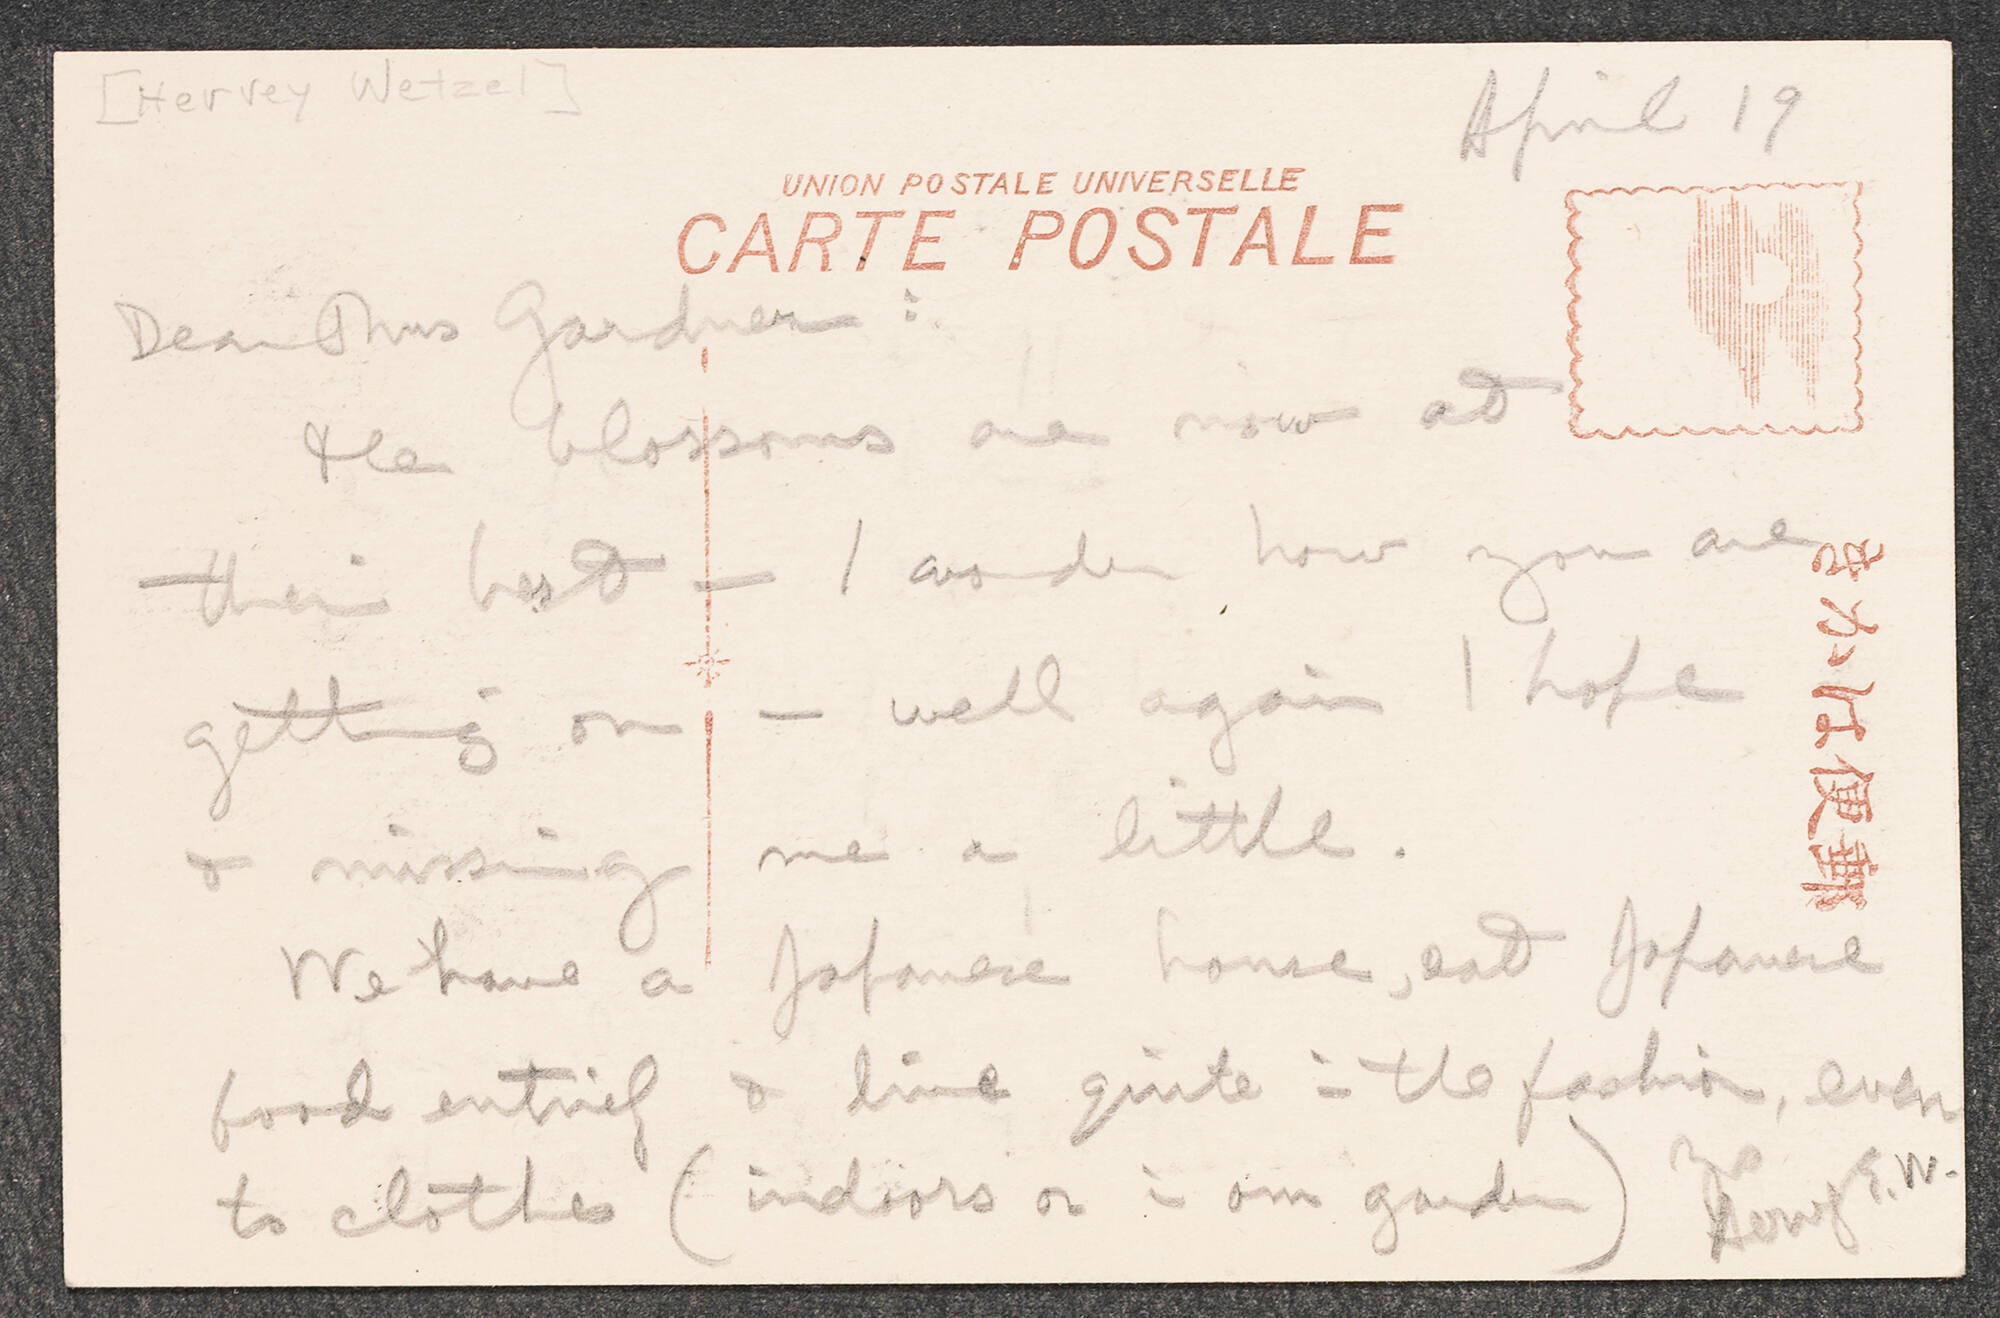 [Hervey Wetzel]
April 19
UNION POSTALE UNIVERSELLE
CARTE POSTALE
Dear Mrs Gardner:
the blossoms are now at
their best – I wonder how you are
getting on – well again I hope
& missing me a little.
We have a Japanese house, eat Japanese
food entirely & live quite in the fashion, even
to clothes (indoors or in our garden)
Hervey E. W.
きかは便郵